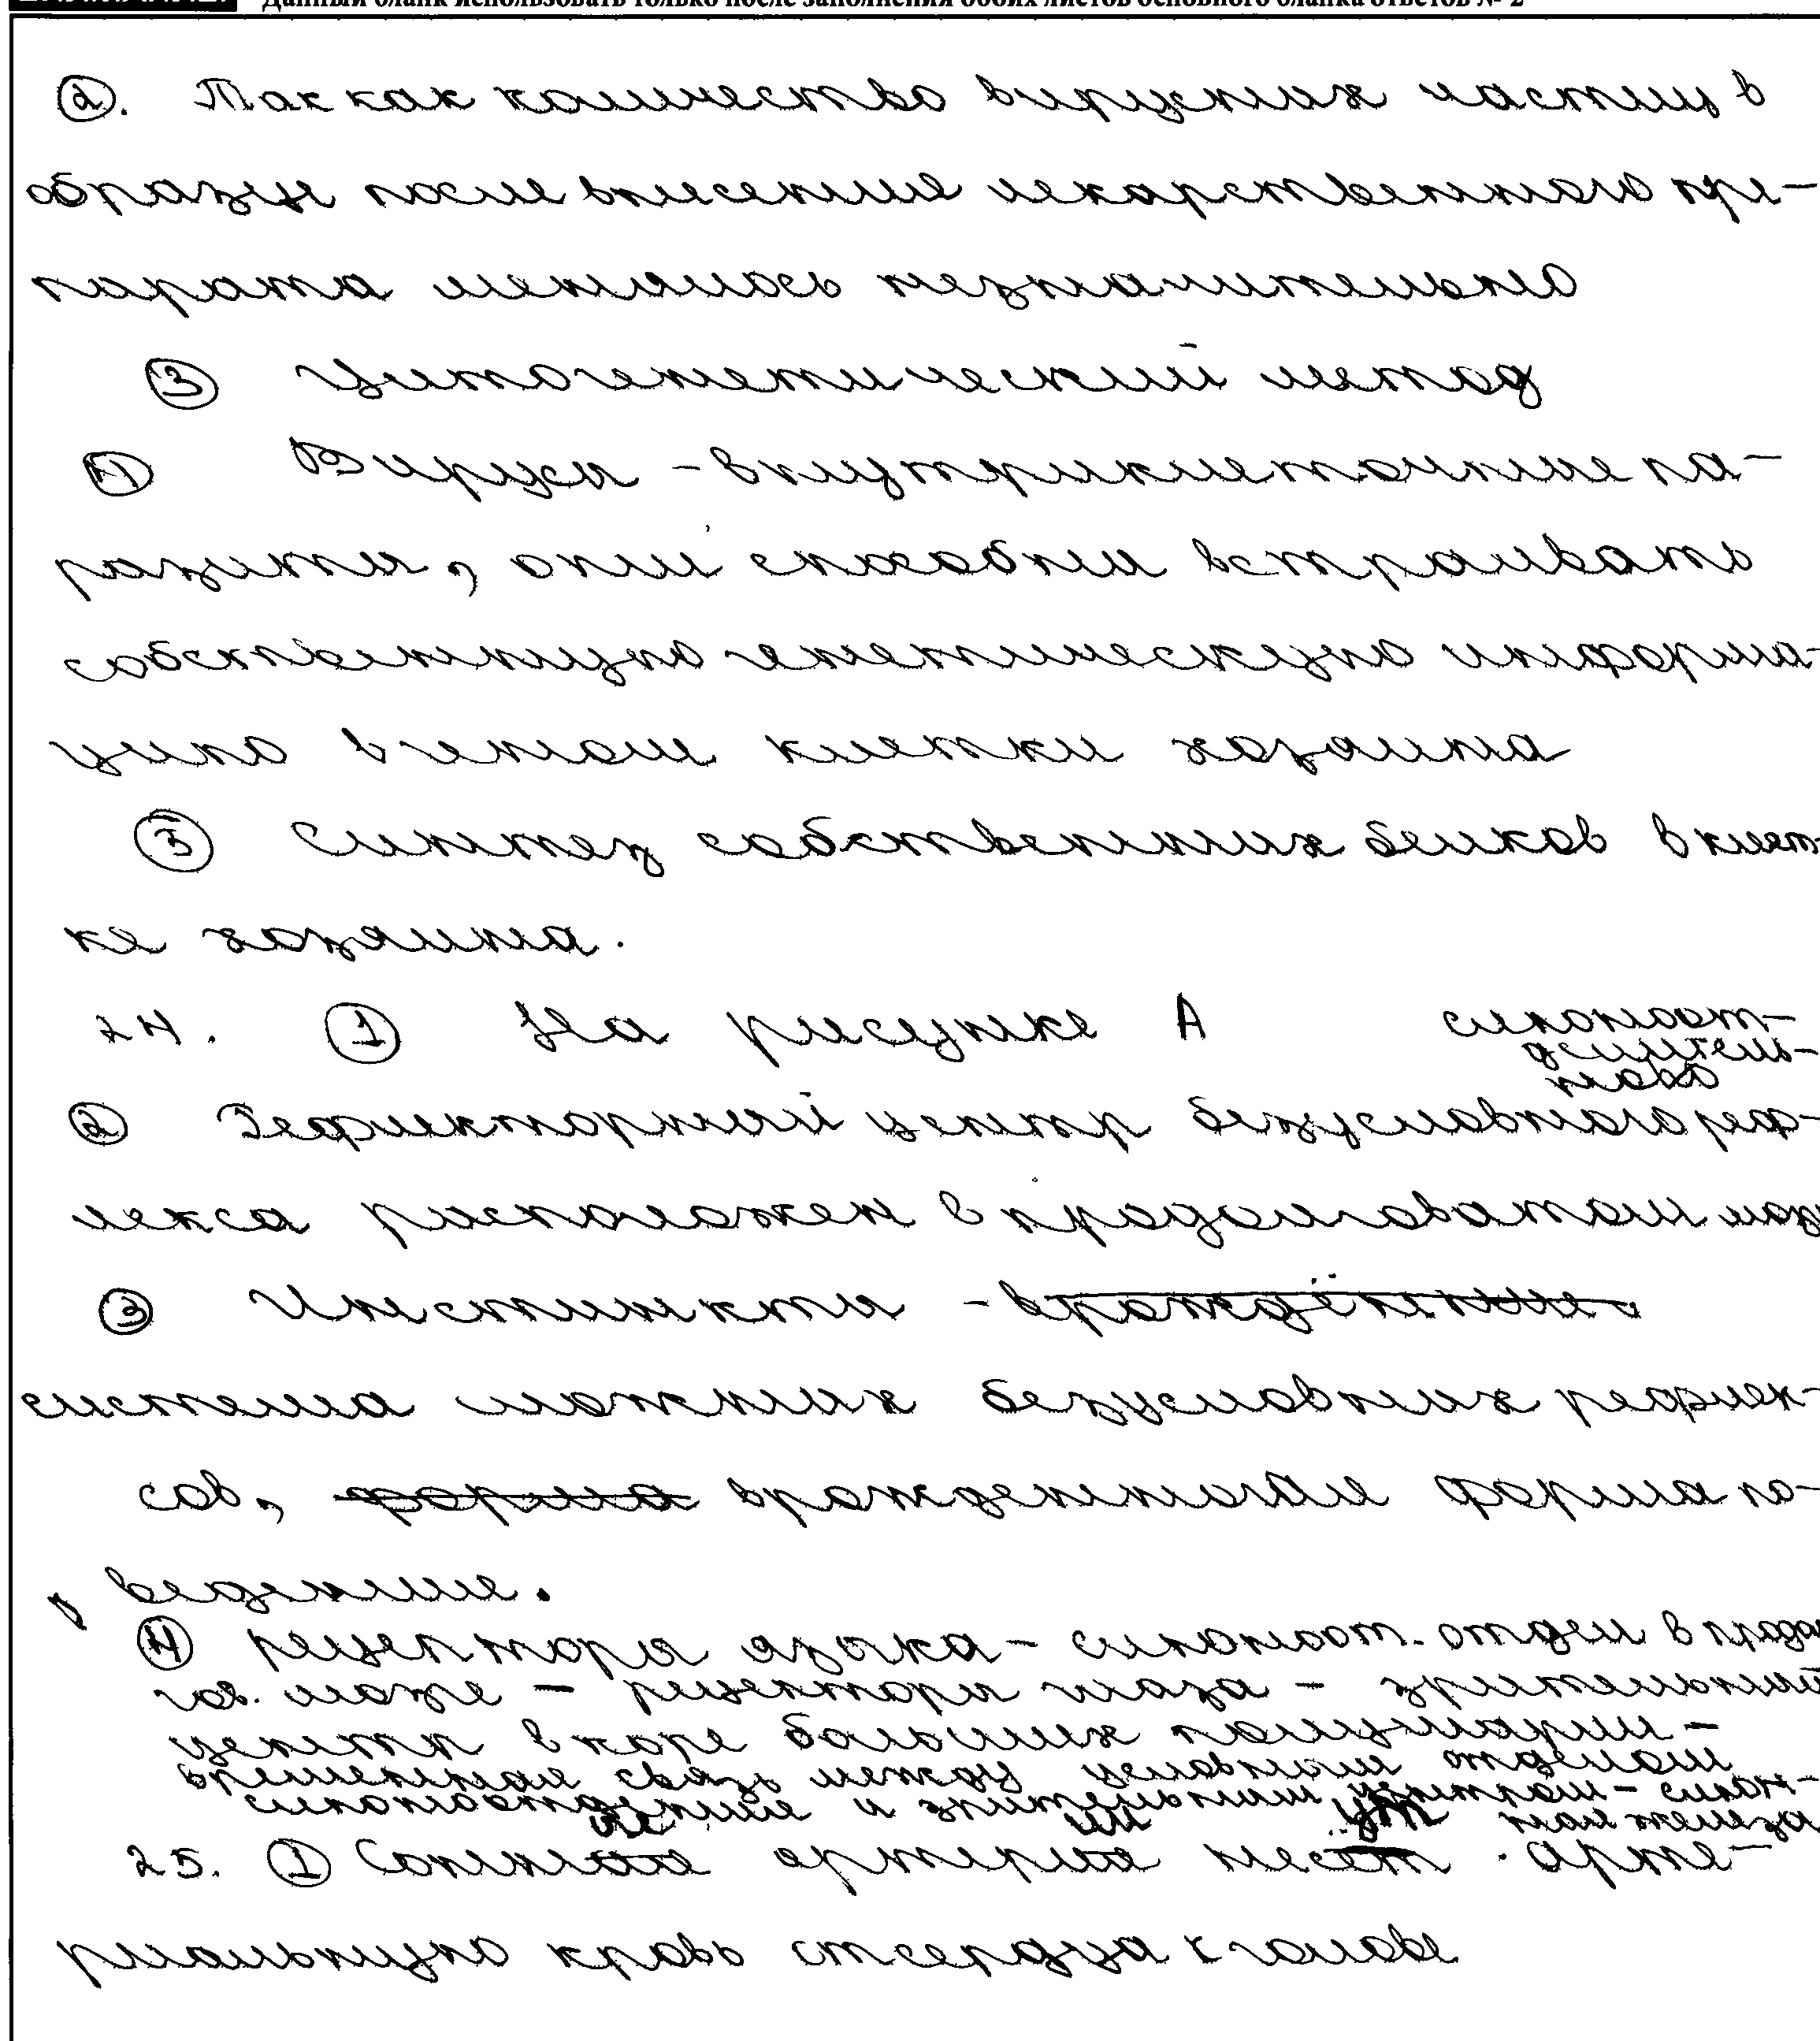 Данный бланк использовать только после заполнения обоих листов основного бланка ответов № 2
②. Так как количество вирусных частиц в
образце после внесения лекарственного пре-
парата менялось незначительно
③ Цитогенетический метод
④ Вирусы - внутриклеточные па-
разиты, они способны встраивать
собственную генетическую информа-
цию в геном клетки хозяина
⑤ Синтез собственных белков в клет-
ке хозяина.
24. ① На рисунке А
слюноот-
делитель-
ного
② Рефлекторный центр безусловного реф-
лекса расположен в продолговатом мозг
③ Инстинкты - врождённые
система сложных безусловных рефлек-
сов, форма врожденная форма по-
ведения.
④ рецептора язычка - слюноот. отдел в продол
гов. мозге - рецепторы глаза - зрительный
центр в коре больших полушарий -
временная связь между условным отделом
слюноотделения и зрительным центром - слюн-
ная железа
25. ① Сонные артерии несут артe-
риальную кровь от сердца к голове